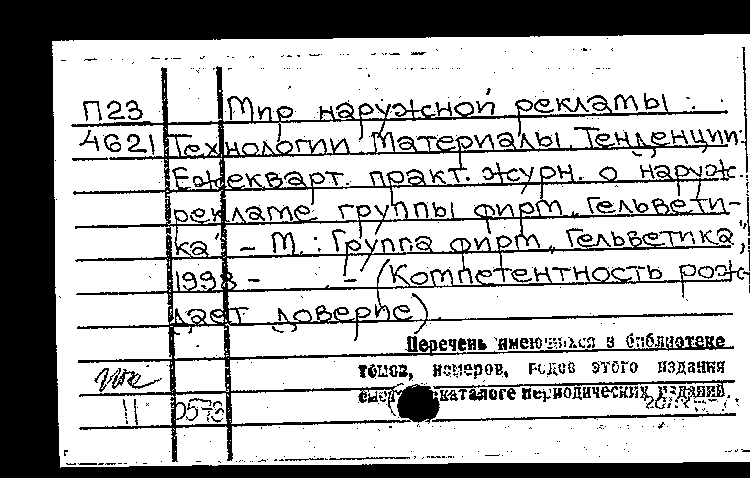 П23 Мир наружной рекламы :
4621 Технологии. Материалы. Тенденции:
Ежекварт. практ. журн. о наруж.
рекламе группы фирм „Гельвети-
ка“ – М.: Группа фирм „Гельветика“,
1998 – . – (Компетентность рож-
дает доверие).
Перечень имеющихся в библиотеке
томов, номеров, годов этого издания
каталоге периодических изданий
11 0573